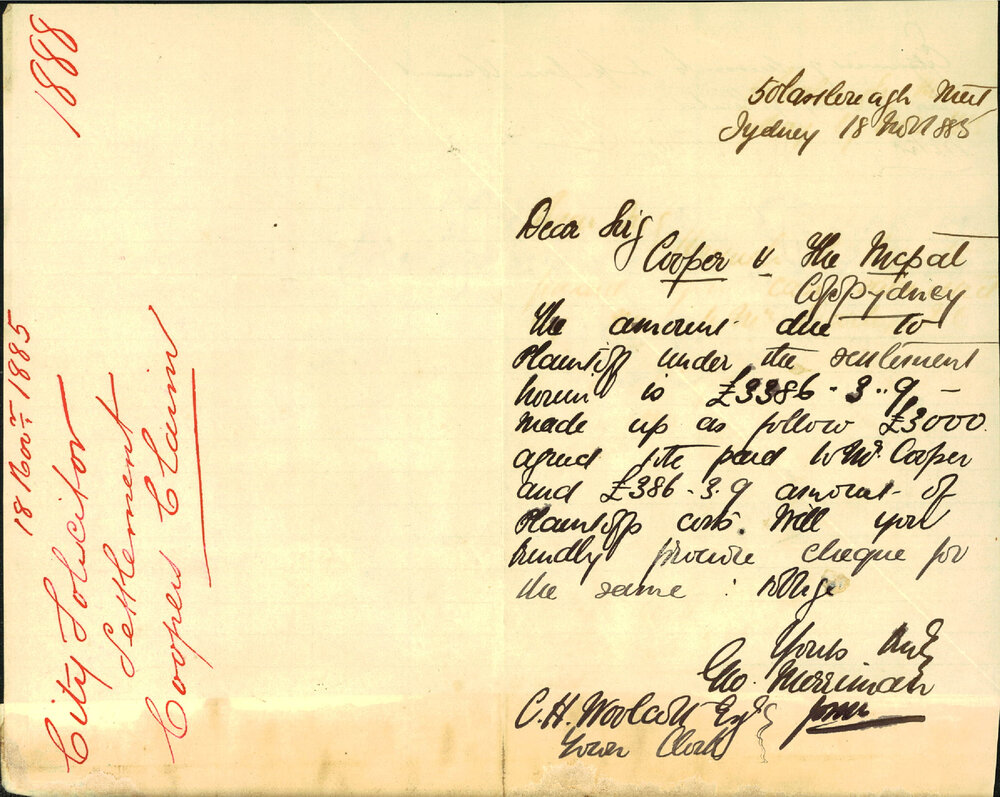 1888
18 Novr. 1885
City Solicitor
Settlement
Coopers Claim
5 Castlereagh Street
Sydney 18 Nov 1885
Dear Sir
Cooper v The Mcpal
Sydney
The amount due to
Plaintiff under the settlement
herein is £3386-3..9 -
made up as follow £3000
agreed to be paid to Mr. Cooper
and £386-3.9 amount of
Plaintiffs costs. Will you
kindly procure cheque for
the same & oblige
Yours truly
Geo. Merriman
C.H. Woolcott Esq
Town Clerk